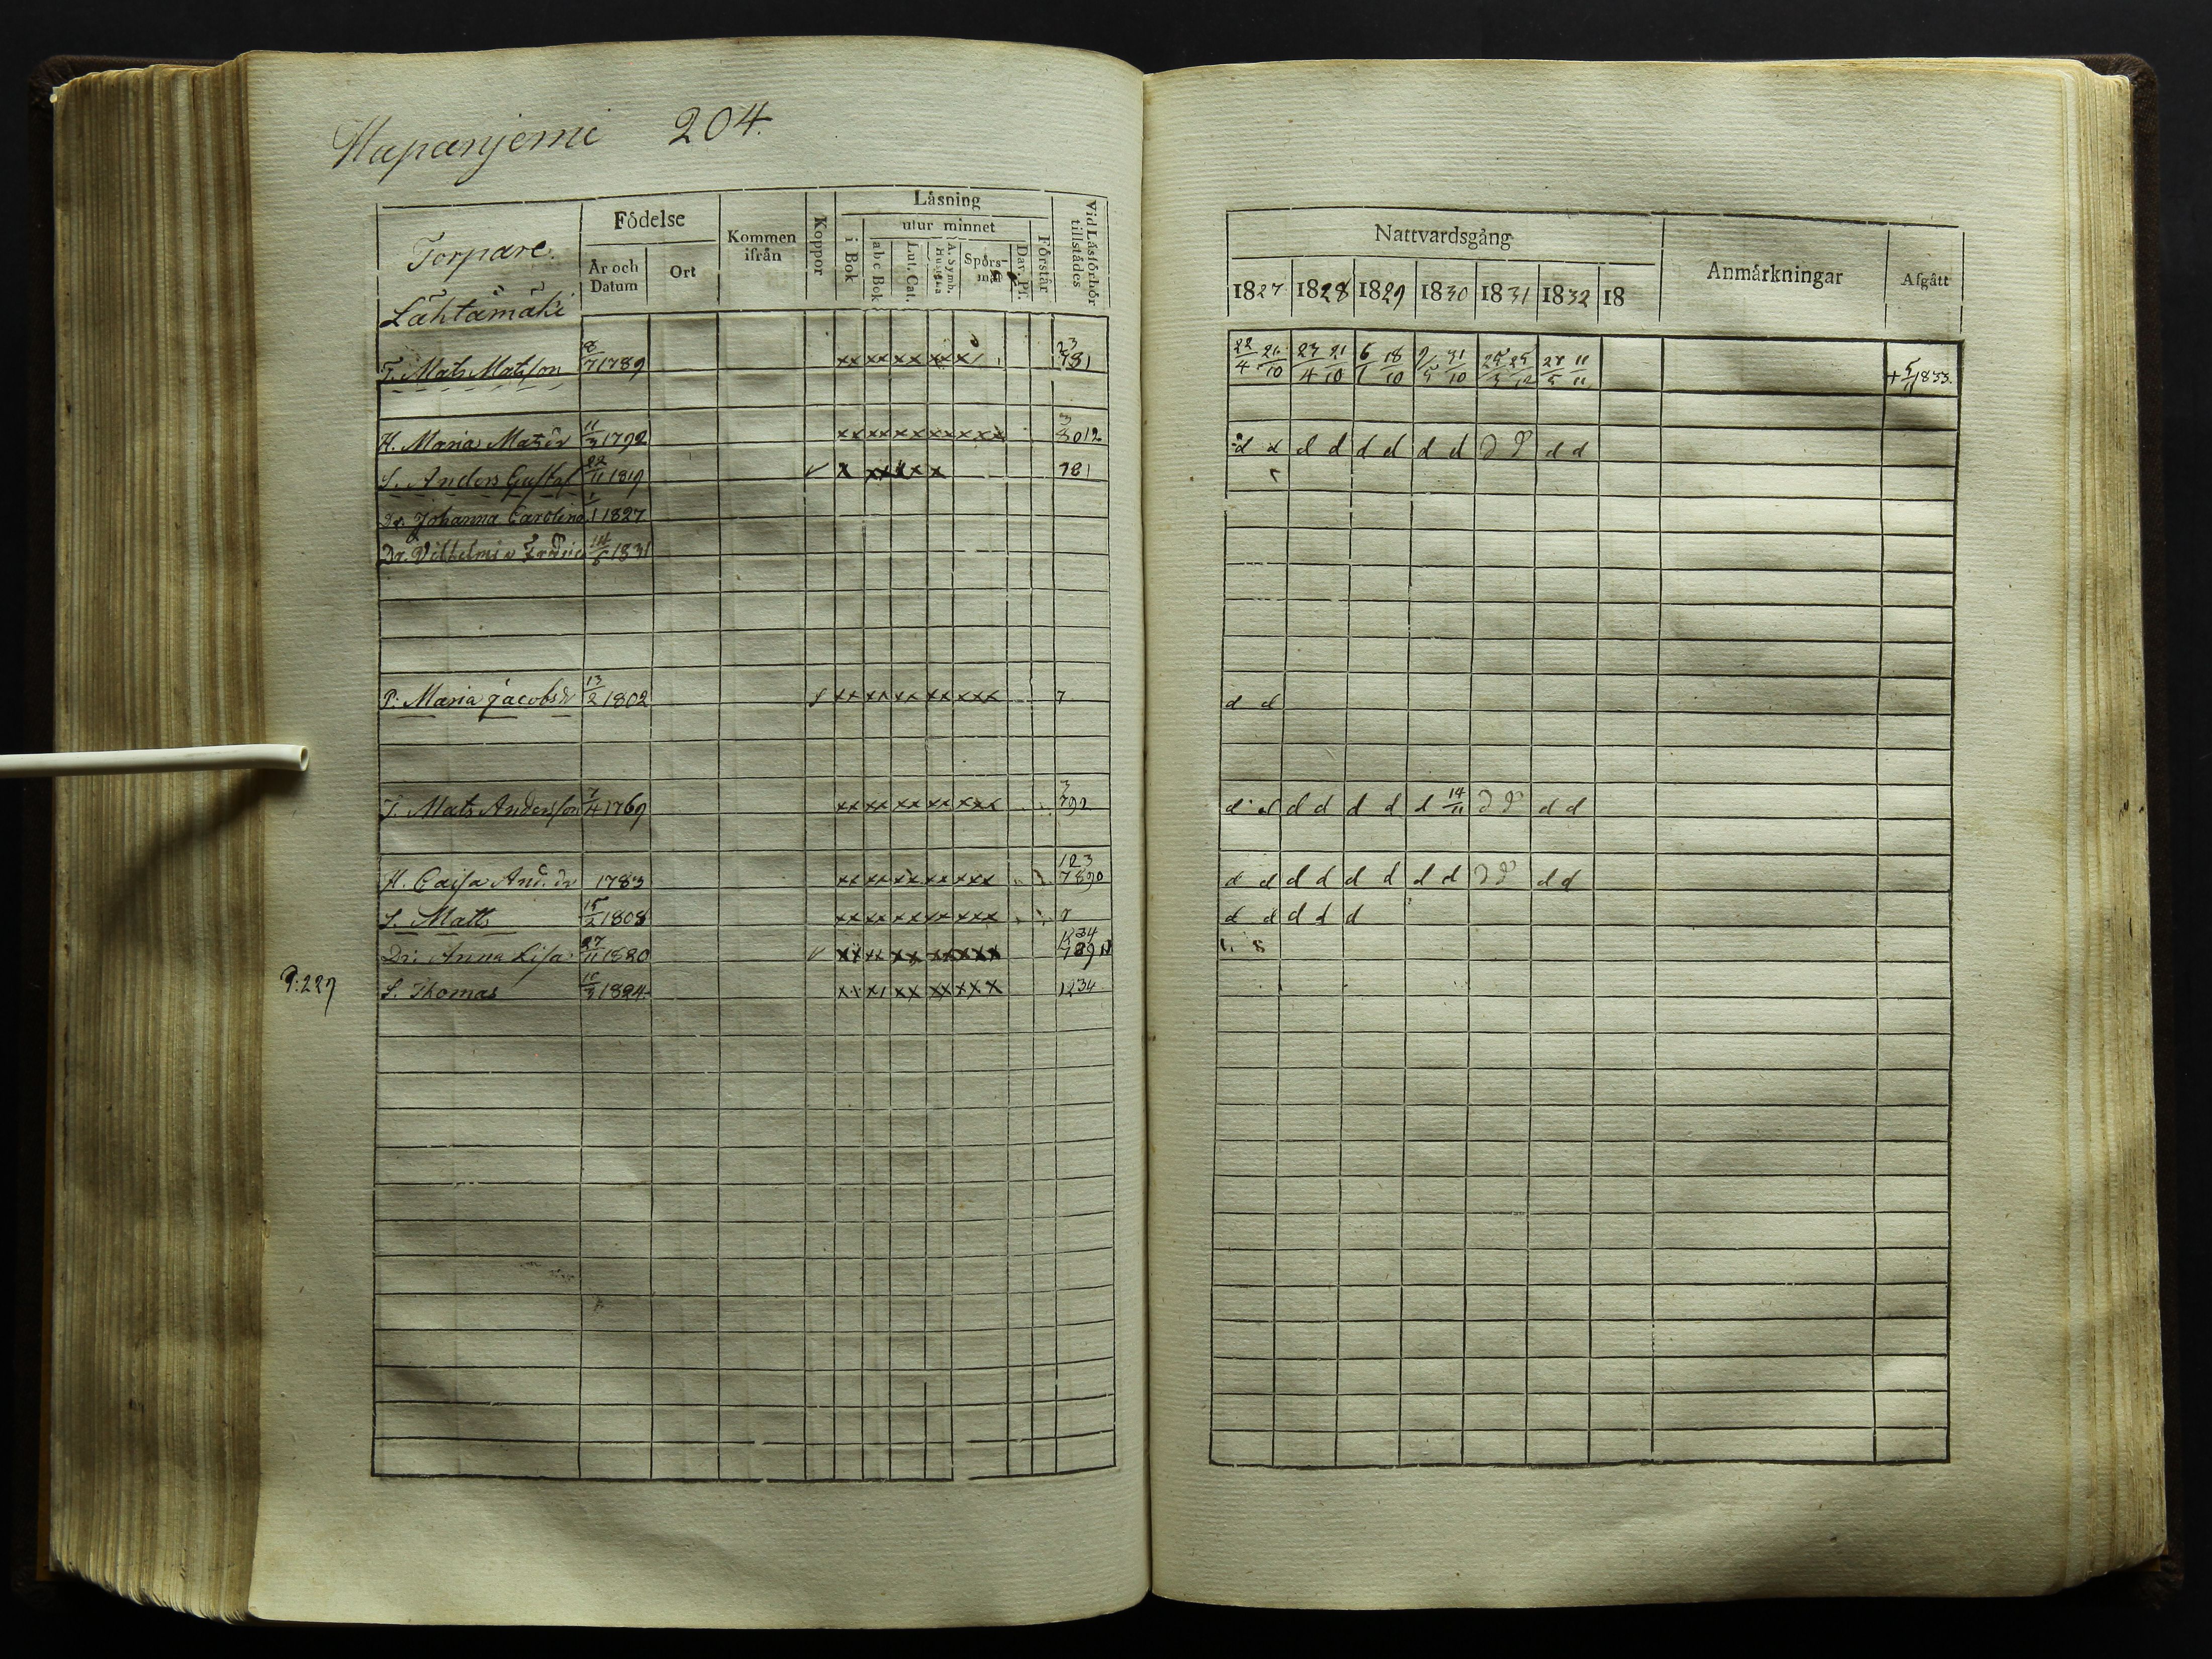 Hapanjemi 204.
Torpare.
Lähtämäki
Födelse
År och Datum
Ort
Kommen ifrån
Koppor
Låsning
utur minnet
i Bok
a b c Bok
Lut. Cat.
A. Symb. Hust.a
Spörs-mål
Dav. Ps.
Förstår
Vid Låsförhör tillstådes
T. Mats Matsson 8/7 1789 xx xx xx xx x 23 781
H. Maria Matsdr 11/3 1792 xx xx xx xx xxx 3 8012
S. Anders Gustaf 22/11 1819 x xx xx x 781
Dr. Johanna Carolina 1/1 1827
Dr. Vilhelmina 14/6 1831
P. Maria Jacobsdr 13/2 1802 xx xx xx xx xxx 7
T. Mats Andersson 1/4 1769 xx xx xx xx xxx 3 792
H. Caisa And. dr 1783 xx xx xx xx xxx 123 7890
S. Matts 15/2 1808 xx xx xx xx xxx
Dr. Anna Lisa 27/11 1820 xx xx xx xx xxx 1234
P:227 S. Thomas 10/3 1824 xx xx xx xx xxx 1234
Nattvardsgång
Anmärkningar
Afgått
1827 1828 1829 1830 1831 1832 18
22/4 21/10 23/4 21/10 6/1 18/10 9/5 31/10 25/5 25/12 27/5 11/11 + 5/11 1833.
d d d d d d d d d d d d
d d
d d d d d d d 14/11 d d d d
d d d d d d d d d d d d
d d d d d